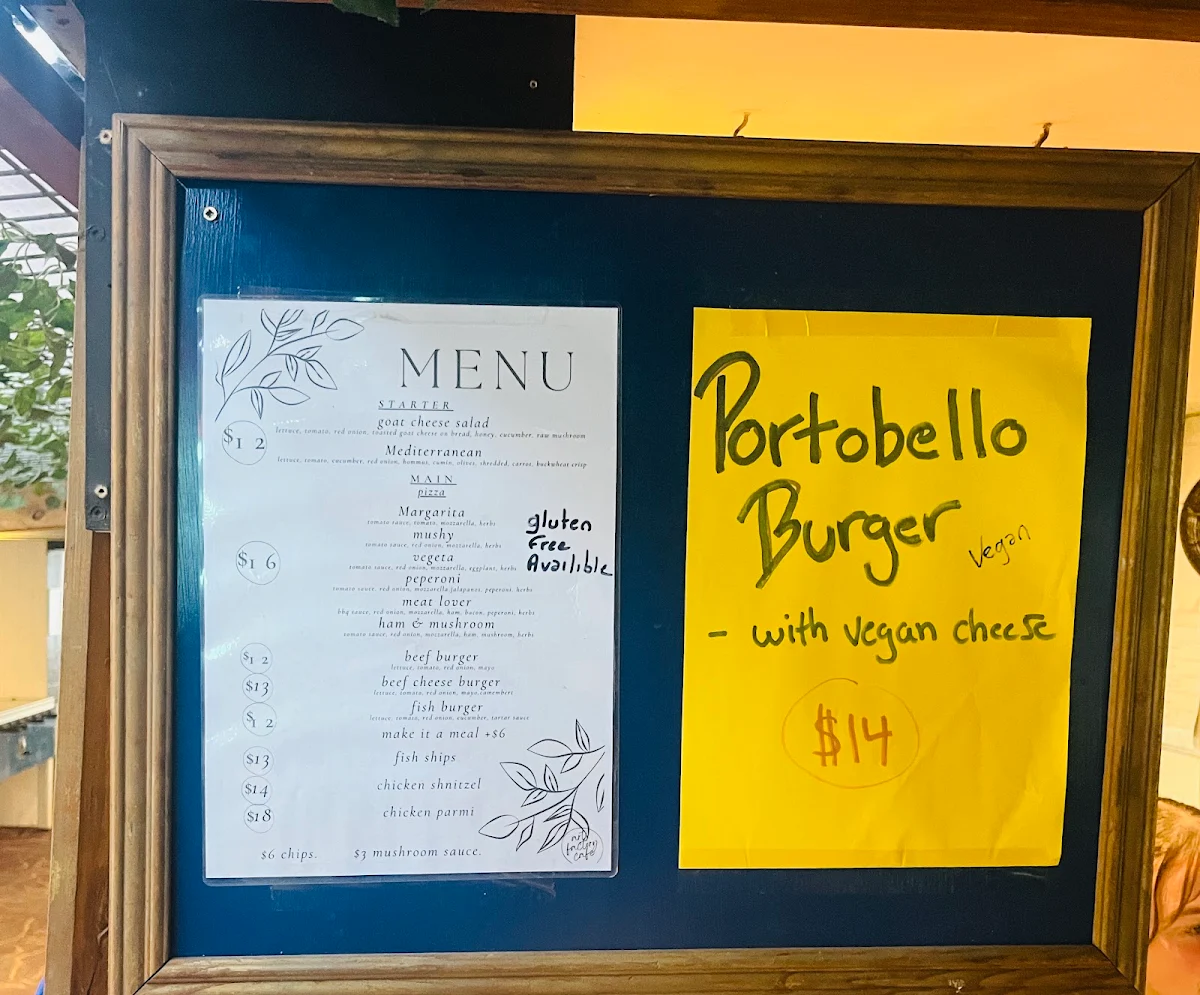 MENU
STARTER
goat cheese salad
$12
lettuce, tomato, red onion, toasted goat cheese on bread, honey, cucumber, raw mushroom
Mediterranean
lettuce, tomato, cucumber, red onion, hommus, cumin, olives, shredded, carrot, buckwheat crisp
MAIN
pizza
Margarita
tomato sauce, tomato, mozzarella, herbs
mushy
tomato sauce, red onion, mozzarella, herbs
$16
vegeta
tomato sauce, red onion, mozzarella, eggplant, herbs
peperoni
tomato sauce, red onion, mozzarella, jalapanos, peperoni, herbs
meat lover
bbq sauce, red onion, mozzarella, ham, bacon, peperoni, herbs
ham & mushroom
tomato sauce, red onion, mozzarella, ham, mushroom, herbs
gluten
Free
Availible
$12 beef burger
lettuce, tomato, red onion, mayo
$13 beef cheese burger
lettuce, tomato, red onion, mayo, camembert
$12 fish burger
lettuce, tomato, red onion, cucumber, tartar sauce
make it a meal +$6
$13 fish ships
$14 chicken shnitzel
$18 chicken parmi
$6 chips. $3 mushroom sauce.
factory
cafe
Portobello
Burger
Vegan
- with vegan cheese
$14